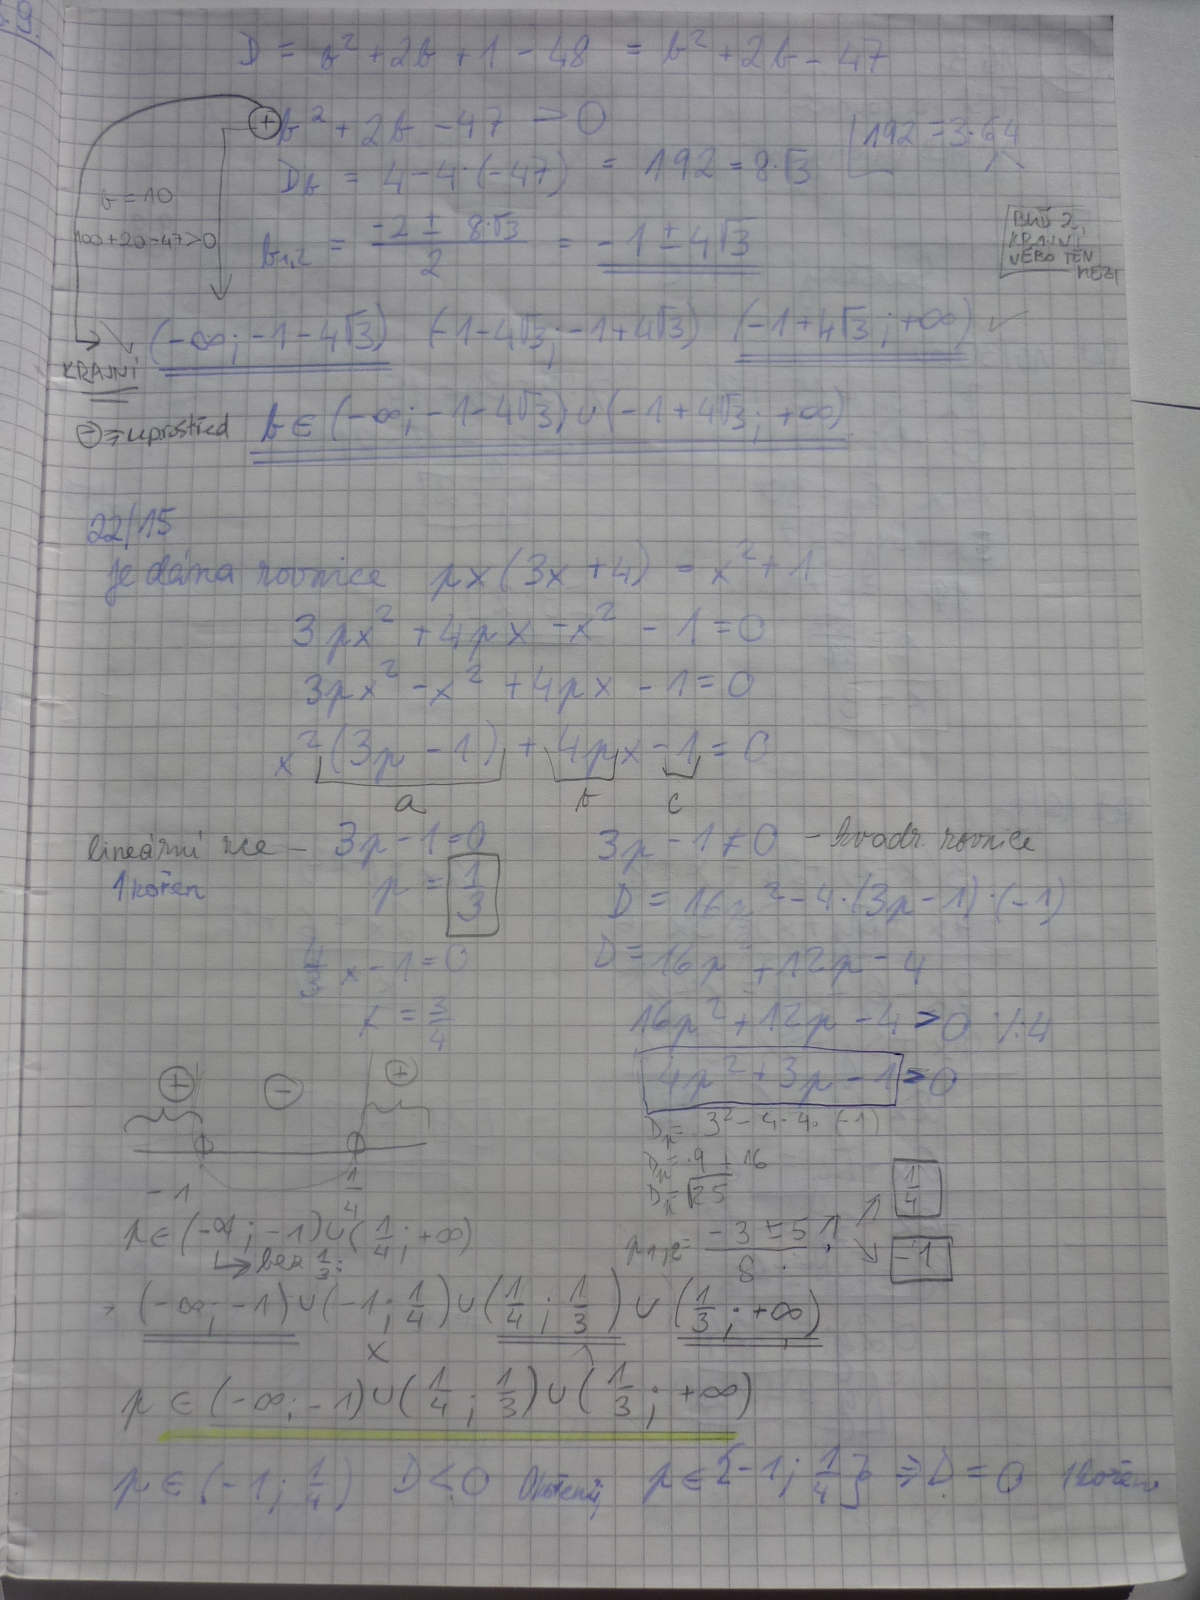 D = b² + 2b + 1 - 48 = b² + 2b - 47
⊕ b² + 2b - 47 > 0
192 = 3·64
D_b = 4 - 4·(-47) = 192 = 8·√3
b = 10
100+20-47>0
b₁,₂ = (-2 ± 8·√3)/2 = -1 ± 4√3
BUĎ 2 KRAJNÍ NEBO TEN MEZI
(-∞; -1-4√3) (-1-4√3; -1+4√3) (-1+4√3; +∞) ✓
KRAJNÍ
⊖ = uprostřed b ∈ (-∞; -1-4√3) ∪ (-1+4√3; +∞)
22/15
je dána rovnice px(3x+4) = x²+1
3px² + 4px - x² - 1 = 0
3px² - x² + 4px - 1 = 0
x²(3p-1) + 4px - 1 = 0
a b c
lineární rce – 3p-1=0
1 kořen p = 1/3
4/3 x - 1 = 0
x = 3/4
3p-1≠0 - kvadr. rovnice
D = 16p² - 4·(3p-1)·(-1)
D = 16p² + 12p - 4
16p² + 12p - 4 > 0 /:4
4p² + 3p - 1 > 0
D_p = 3² - 4·4·(-1)
D_p = 9 + 16
D_p = √25
p₁,₂ = (-3 ± 5)/8
1/4
-1
⊕ ⊖ ⊕
-1 1/4
p ∈ (-∞; -1) ∪ (1/4; +∞)
↳ bez 1/3:
(-∞; -1) ∪ (-1; 1/4) ∪ (1/4; 1/3) ∪ (1/3; +∞)
x
p ∈ (-∞; -1) ∪ (1/4; 1/3) ∪ (1/3; +∞)
p ∈ (-1; 1/4) D < 0 0kořenů, p ∈ {-1; 1/4} ⇒ D = 0 1kořen